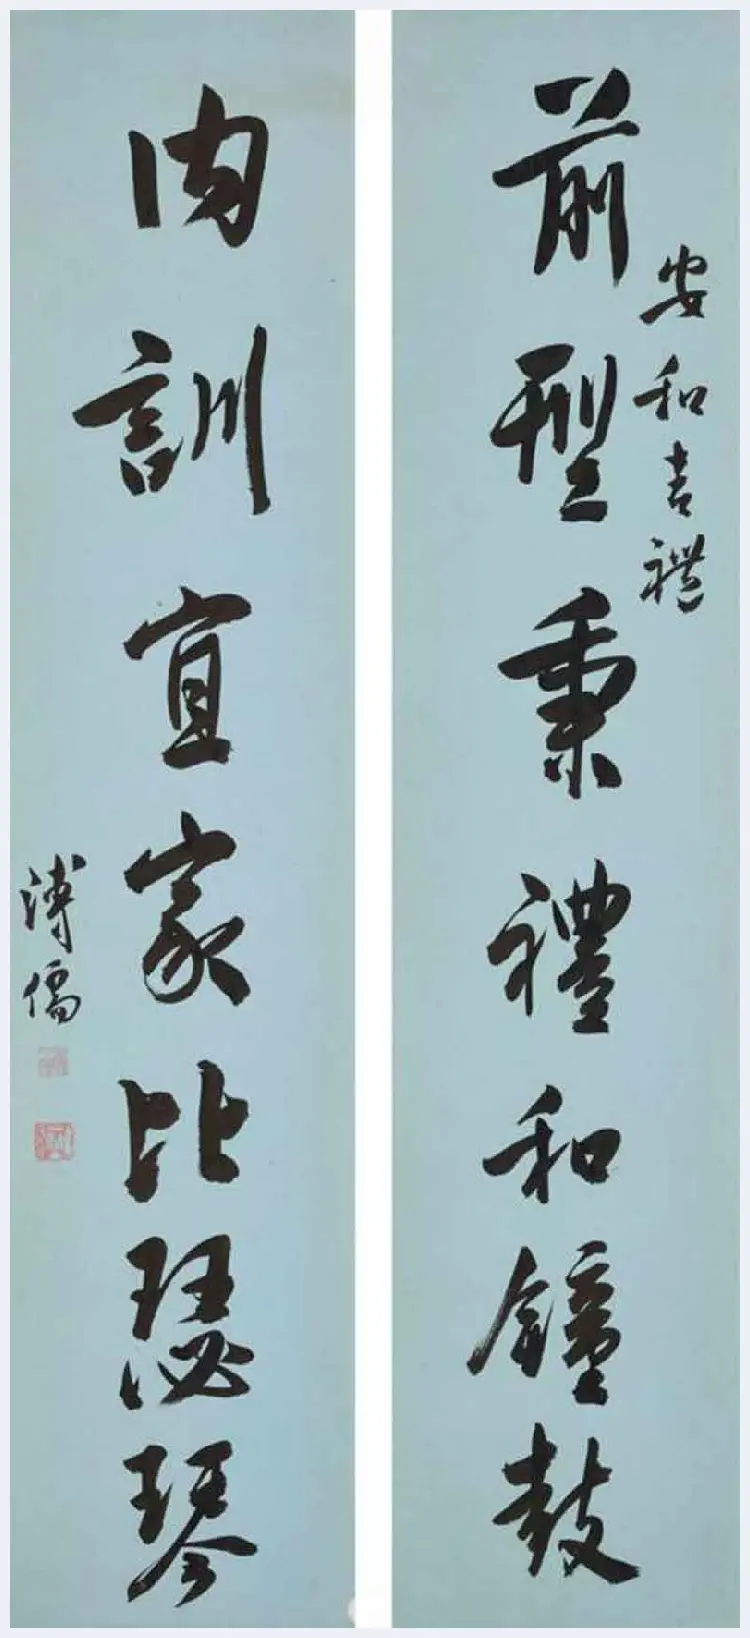 安和吉禮
前型秉禮和鐘鼓
内訓宜家比瑟琴
溥儒